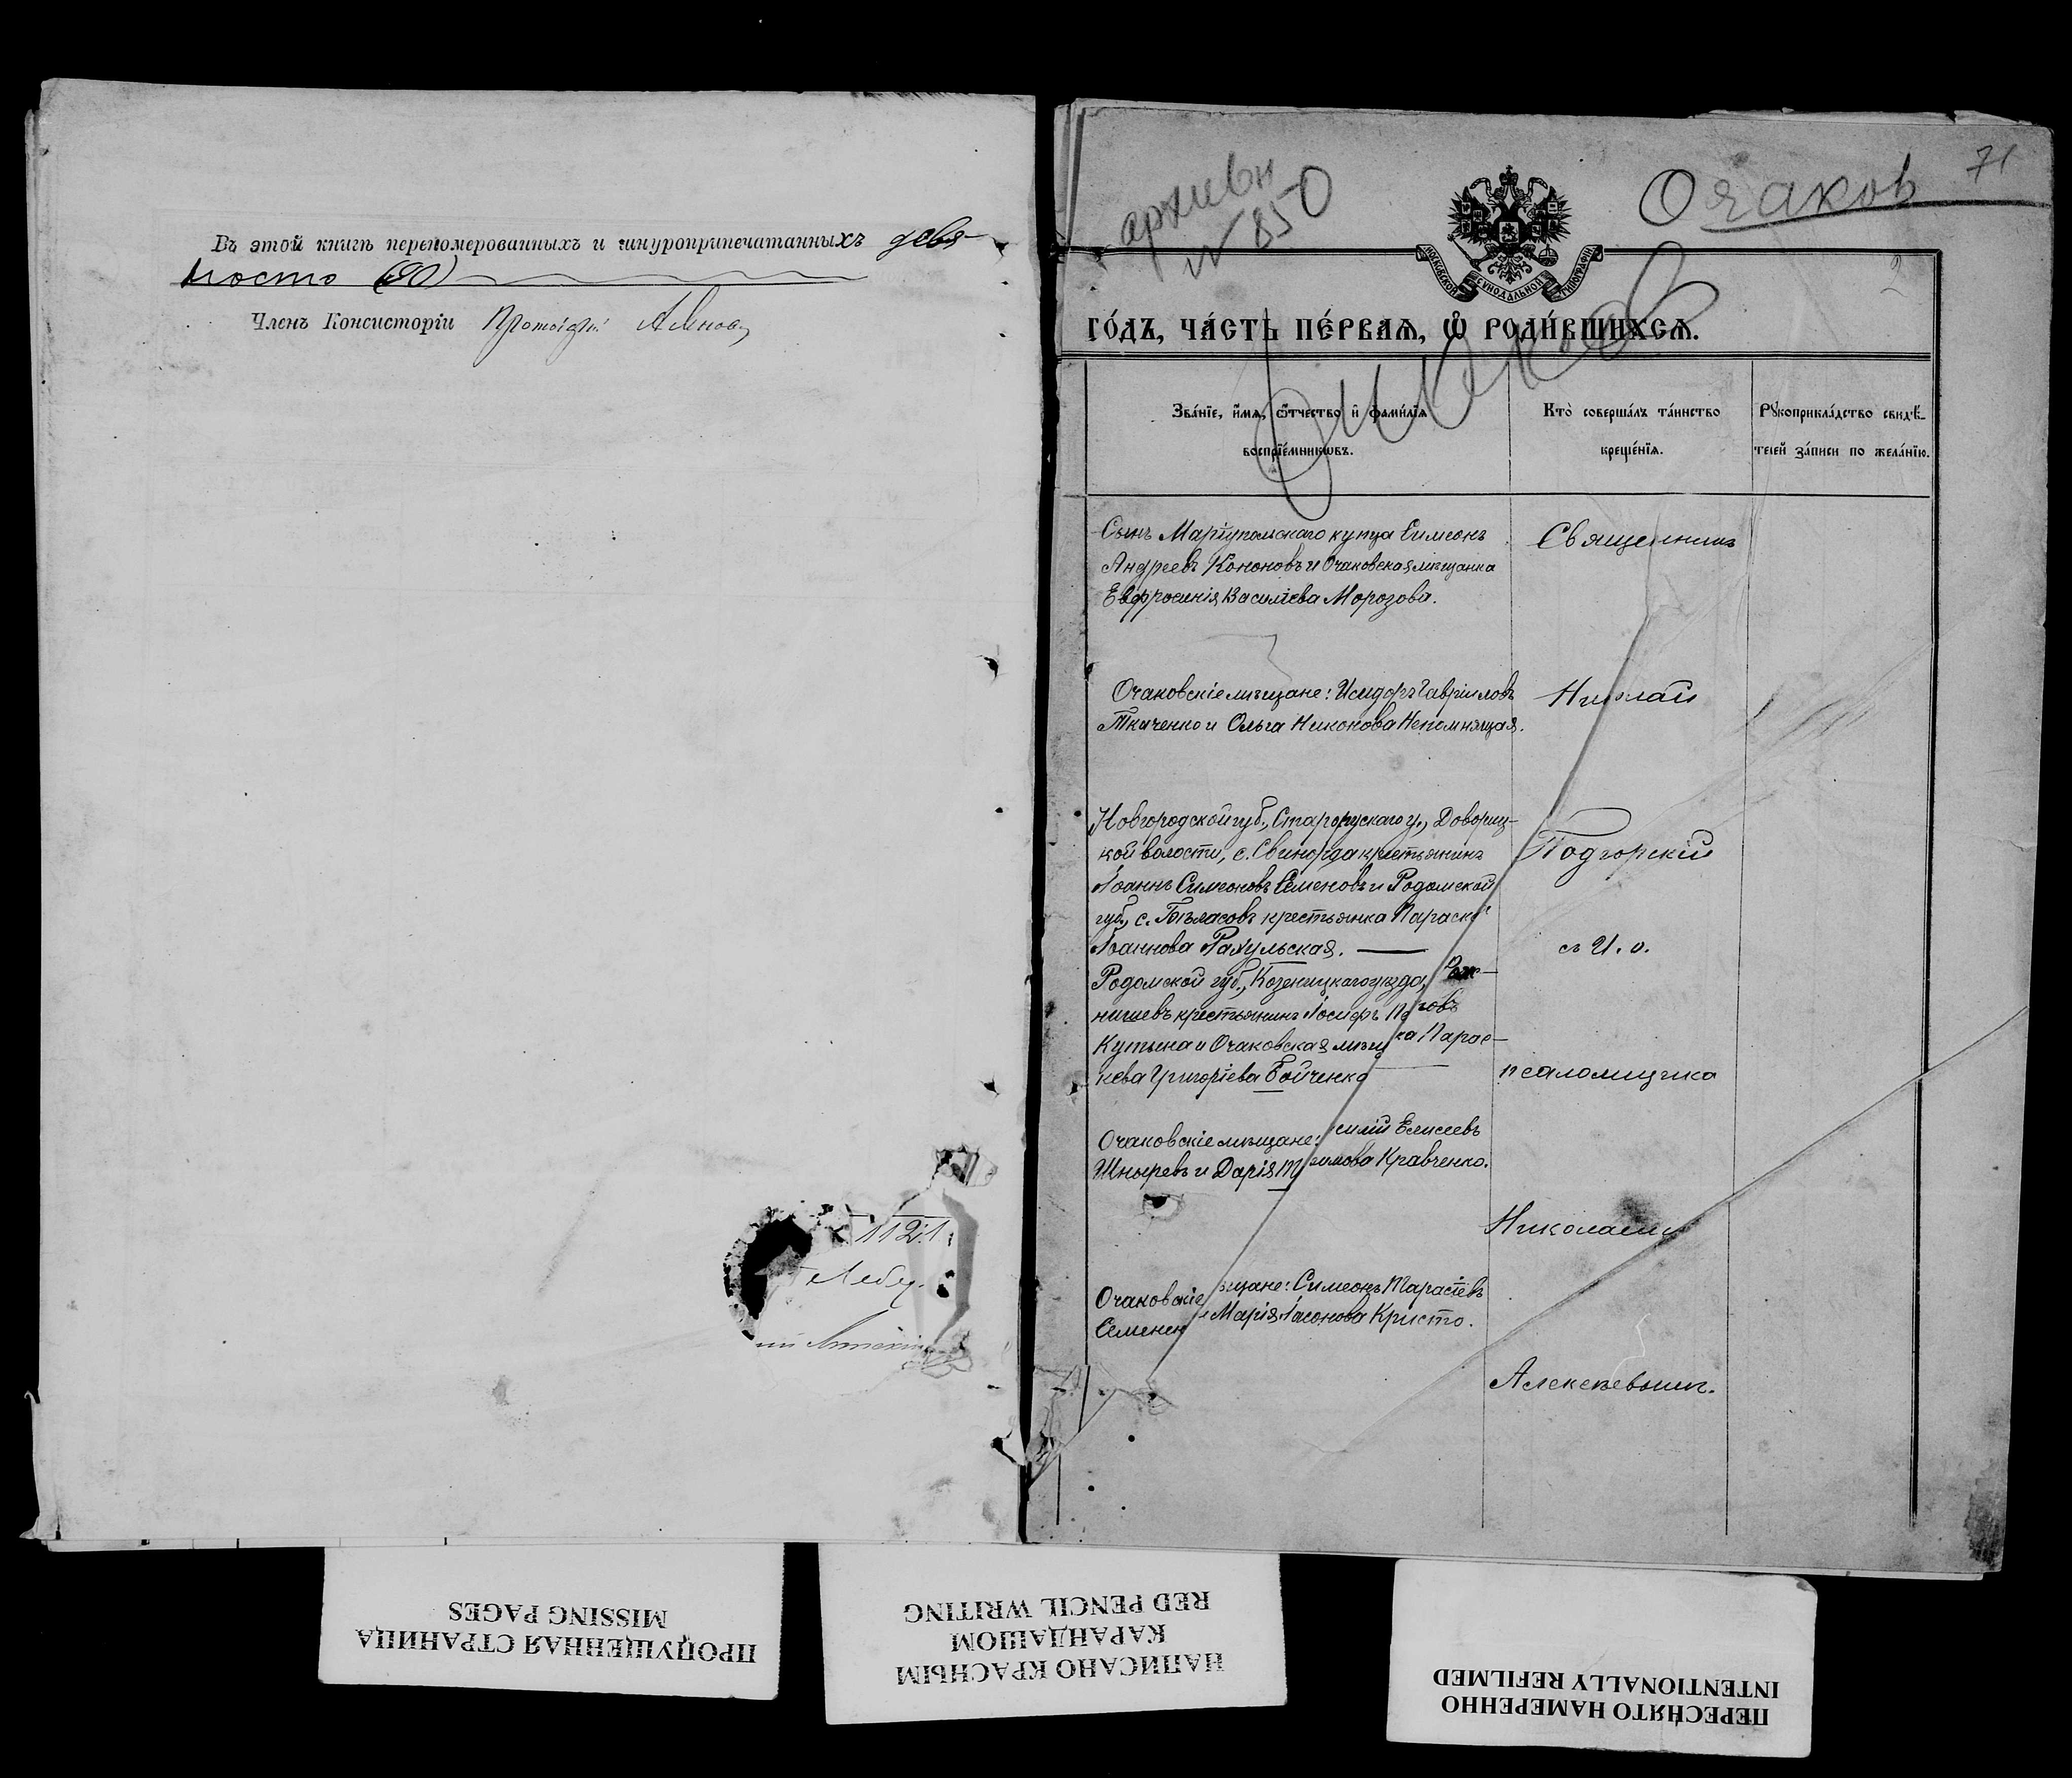 Въ этой книгѣ перенумерованныхъ и шнуроприпечатанныхъ девя-
носто (90)
Членъ Консисторіи Протоіерей
1121
архивн
№ 850
Очаков
71
2
МОСКОВСКОЙ СѴНОДАЛЬНОЙ ТИПОГРАФІИ
Очаков
ГО́ДЪ, ЧА́СТЬ ПЕ́РВАѦ, Ѽ РОДИ́ВШИХСѦ.
Зва́нїе, и҆́мѧ, ѻ҆́тчество и҆ фами́лїѧ
воспрїе́мникѡвъ.
Кто̀ соверша́лъ та́инство
креще́нїѧ.
Рꙋкоприкла́дство свидѣ́-
телей за́писи по жела́нїю.
Сынъ Маріупольскаго купца Симеонъ
Андреевъ Кононовъ и Очаковская мѣщанка
Евфросинія Василіева Морозова.
Священникъ
Очаковскіе мѣщане: Исидоръ Гавріиловъ
Ткаченко и Ольга Никонова Непомнящая.
Николай
Новгородской губ., Старорусскаго у., Довориц-
кой волости, с. Свинорда крестьянинъ
Іоаннъ Симеоновъ Семеновъ и Родомской
губ., с. крестьянка Параск
Іоаннова Рахульская.
Подгорскій
съ И. о.
Родомской губ., Козеницкаго уѣзда,
нишевъ крестьянинъ Іосифъ
Кутына и Очаковская мѣщ ка Парас-
кева Григоріева Бойченко
псаломщика
Очаковскіе мѣщане: силій Елисеевъ
Шныревъ и Дарія Т имова Кравченко.
Николаемъ
Очаковскіе ѣщане: Симеонъ Тарасіевъ
Семенен и Марія Іасонова Кристо.
Алексѣевымъ.
ПРОПУЩЕННАЯ СТРАНИЦА
MISSING PAGES
НАПИСАНО КРАСНЫМ
КАРАНДАШОМ
RED PENCIL WRITING
ПЕРЕСНЯТО НАМЕРЕННО
INTENTIONALLY REFILMED